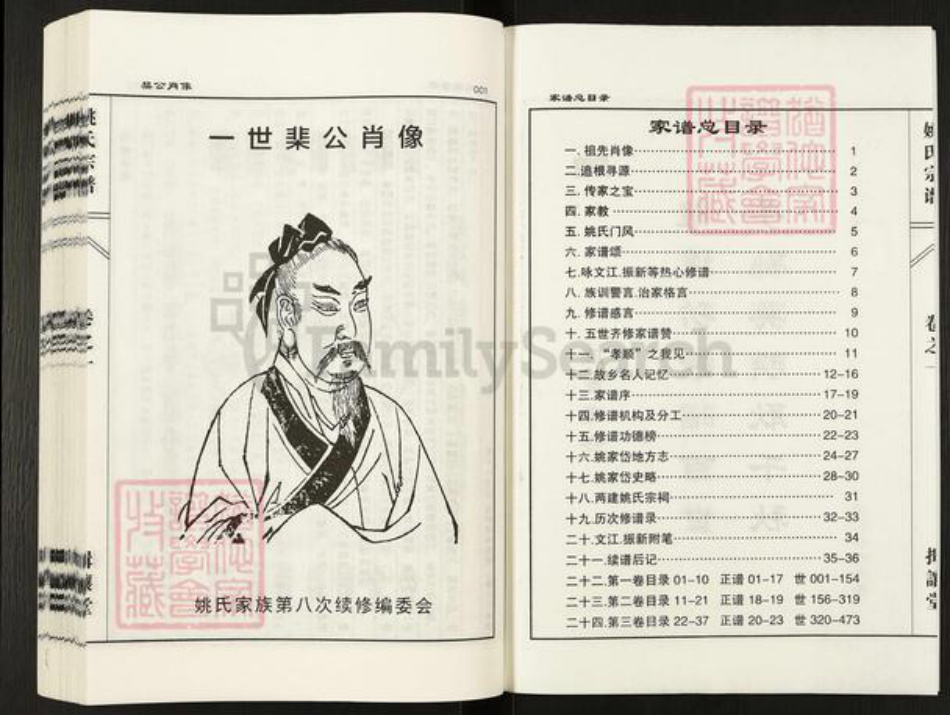 棐公肖像
001
一世棐公肖像
姚氏家族第八次续修编委会
FamilySearch
家谱总目录
家谱总目录
一. 祖先肖像 1
二.追根寻源 2
三. 传家之宝 3
四. 家教 4
五. 姚氏门风 5
六. 家谱颂 6
七.咏文江.振新等热心修谱 7
八. 族训警言.治家格言 8
九. 修谱感言 9
十. 五世齐修家谱赞 10
十一. “孝顺”之我见 11
十二.故乡名人记忆 12-16
十三.家谱序 17-19
十四.修谱机构及分工 20-21
十五.修谱功德榜 22-23
十六.姚家岱地方志 24-27
十七.姚家岱史略 28-30
十八.两建姚氏宗祠 31
十九.历次修谱录 32-33
二十.文江.振新附笔 34
二十一.续谱后记 35-36
二十二.第一卷目录 01-10 正谱 01-17 世 001-154
二十三.第二卷目录 11-21 正谱 18-19 世 156-319
二十四.第三卷目录 22-37 正谱 20-23 世 320-473
姚氏宗谱
卷之